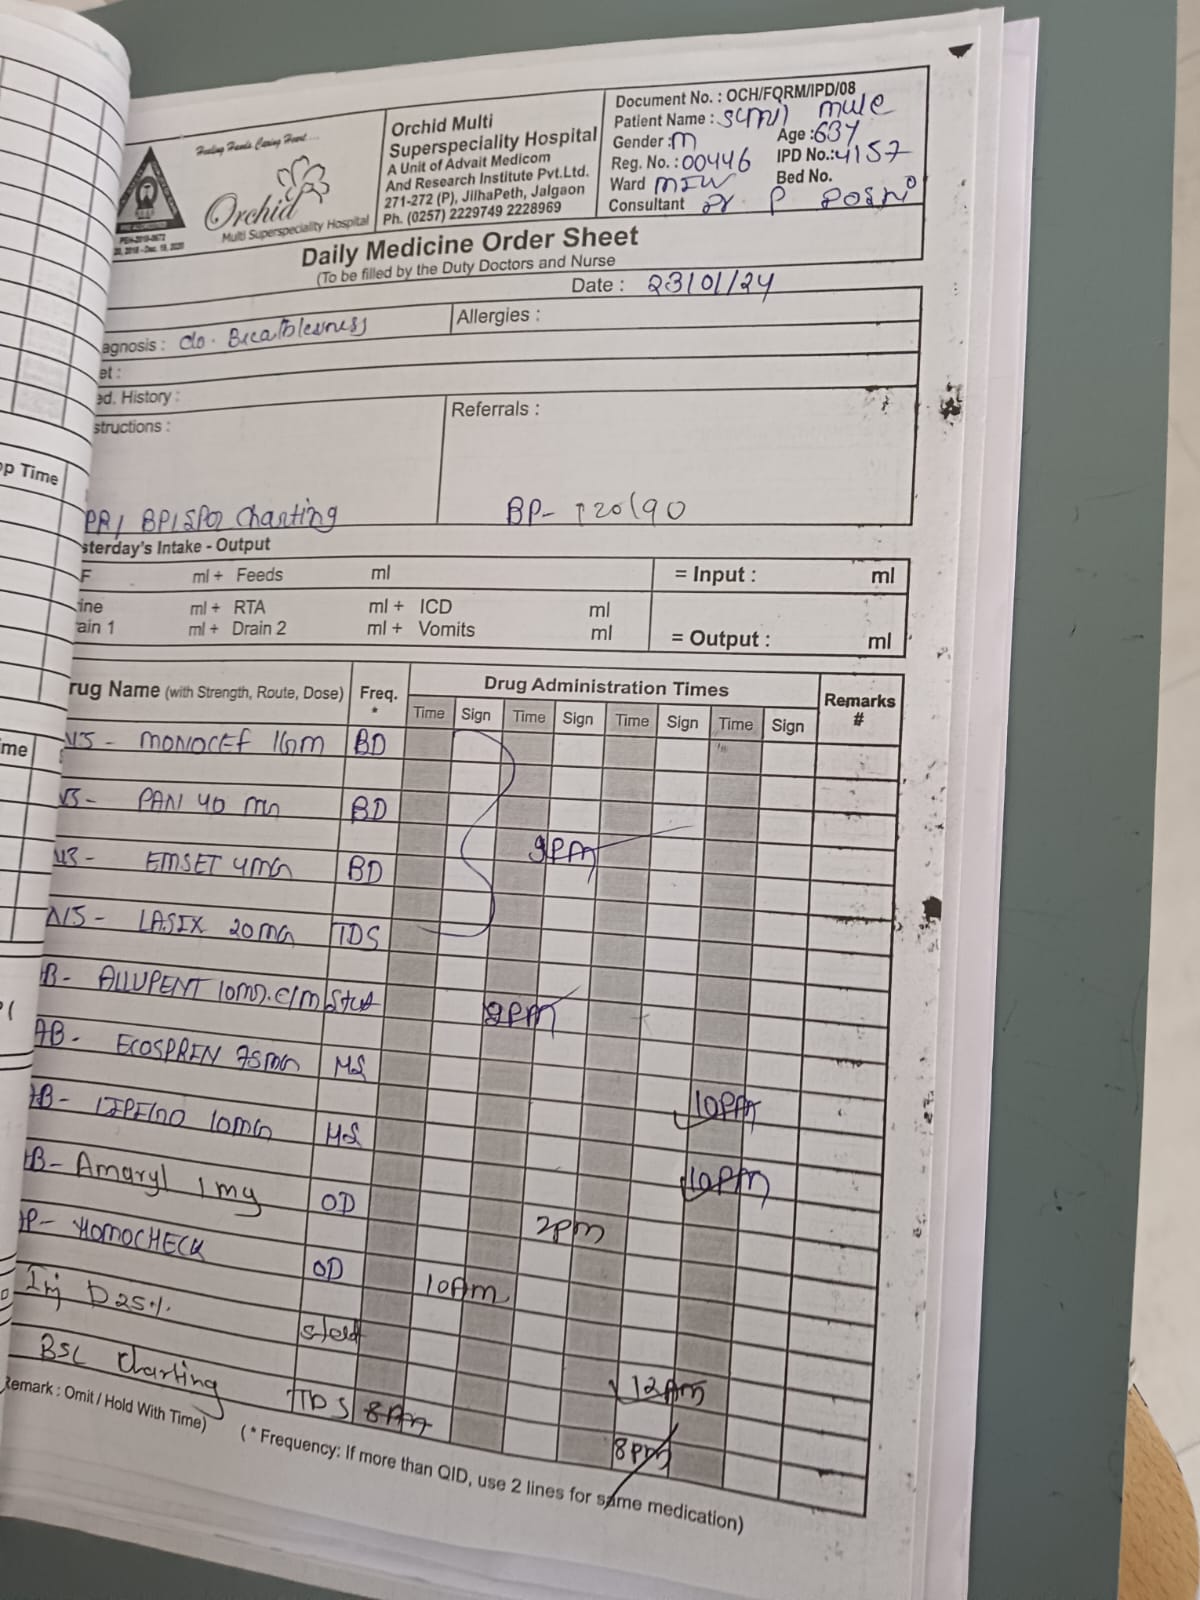 Healing Hands Caring Heart....
Orchid
Multi Superspeciality Hospital
Orchid Multi
Superspeciality Hospital
A Unit of Advait Medicom
And Research Institute Pvt.Ltd.
271-272 (P), JilhaPeth, Jalgaon
Ph. (0257) 2229749 2228969
Document No. : OCH/FORM/IPD/08
Patient Name : mule
Gender : M Age : 63Y
Reg. No. : 00446 IPD No.: 4157
Ward Bed No.
Consultant Dr. P
Daily Medicine Order Sheet
(To be filled by the Duty Doctors and Nurse
Date : 23/01/24
agnosis : c/o. Breathlesness Allergies :
et :
ed. History :
structions : Referrals :
PR/ BP/SPO2 Charting BP- 120/90
sterday's Intake - Output
F ml + Feeds ml = Input : ml
ine ml + RTA ml + ICD ml
ain 1 ml + Drain 2 ml + Vomits ml = Output : ml
rug Name (with Strength, Route, Dose) Freq. * Drug Administration Times Remarks #
Time Sign Time Sign Time Sign Time Sign
- MONOCEF 1Gm BD
- PAN 40 mg BD
9pm
- EMSET 4mg BD
- LASIX 20mg TDS
B- ALLUPENT 10mg Stat 9pm
AB- ECOSPREN 75mg HS 10PM
AB- 10mg HS 10pm
AB- Amaryl 1 mg OD 2pm
AP- HOMOCHECK OD 10Am
Inj D25% Stat 12Am
BSL Charting TDS 8Am 8pm
Remark : Omit / Hold With Time)
(* Frequency: If more than QID, use 2 lines for same medication)
op Time
me